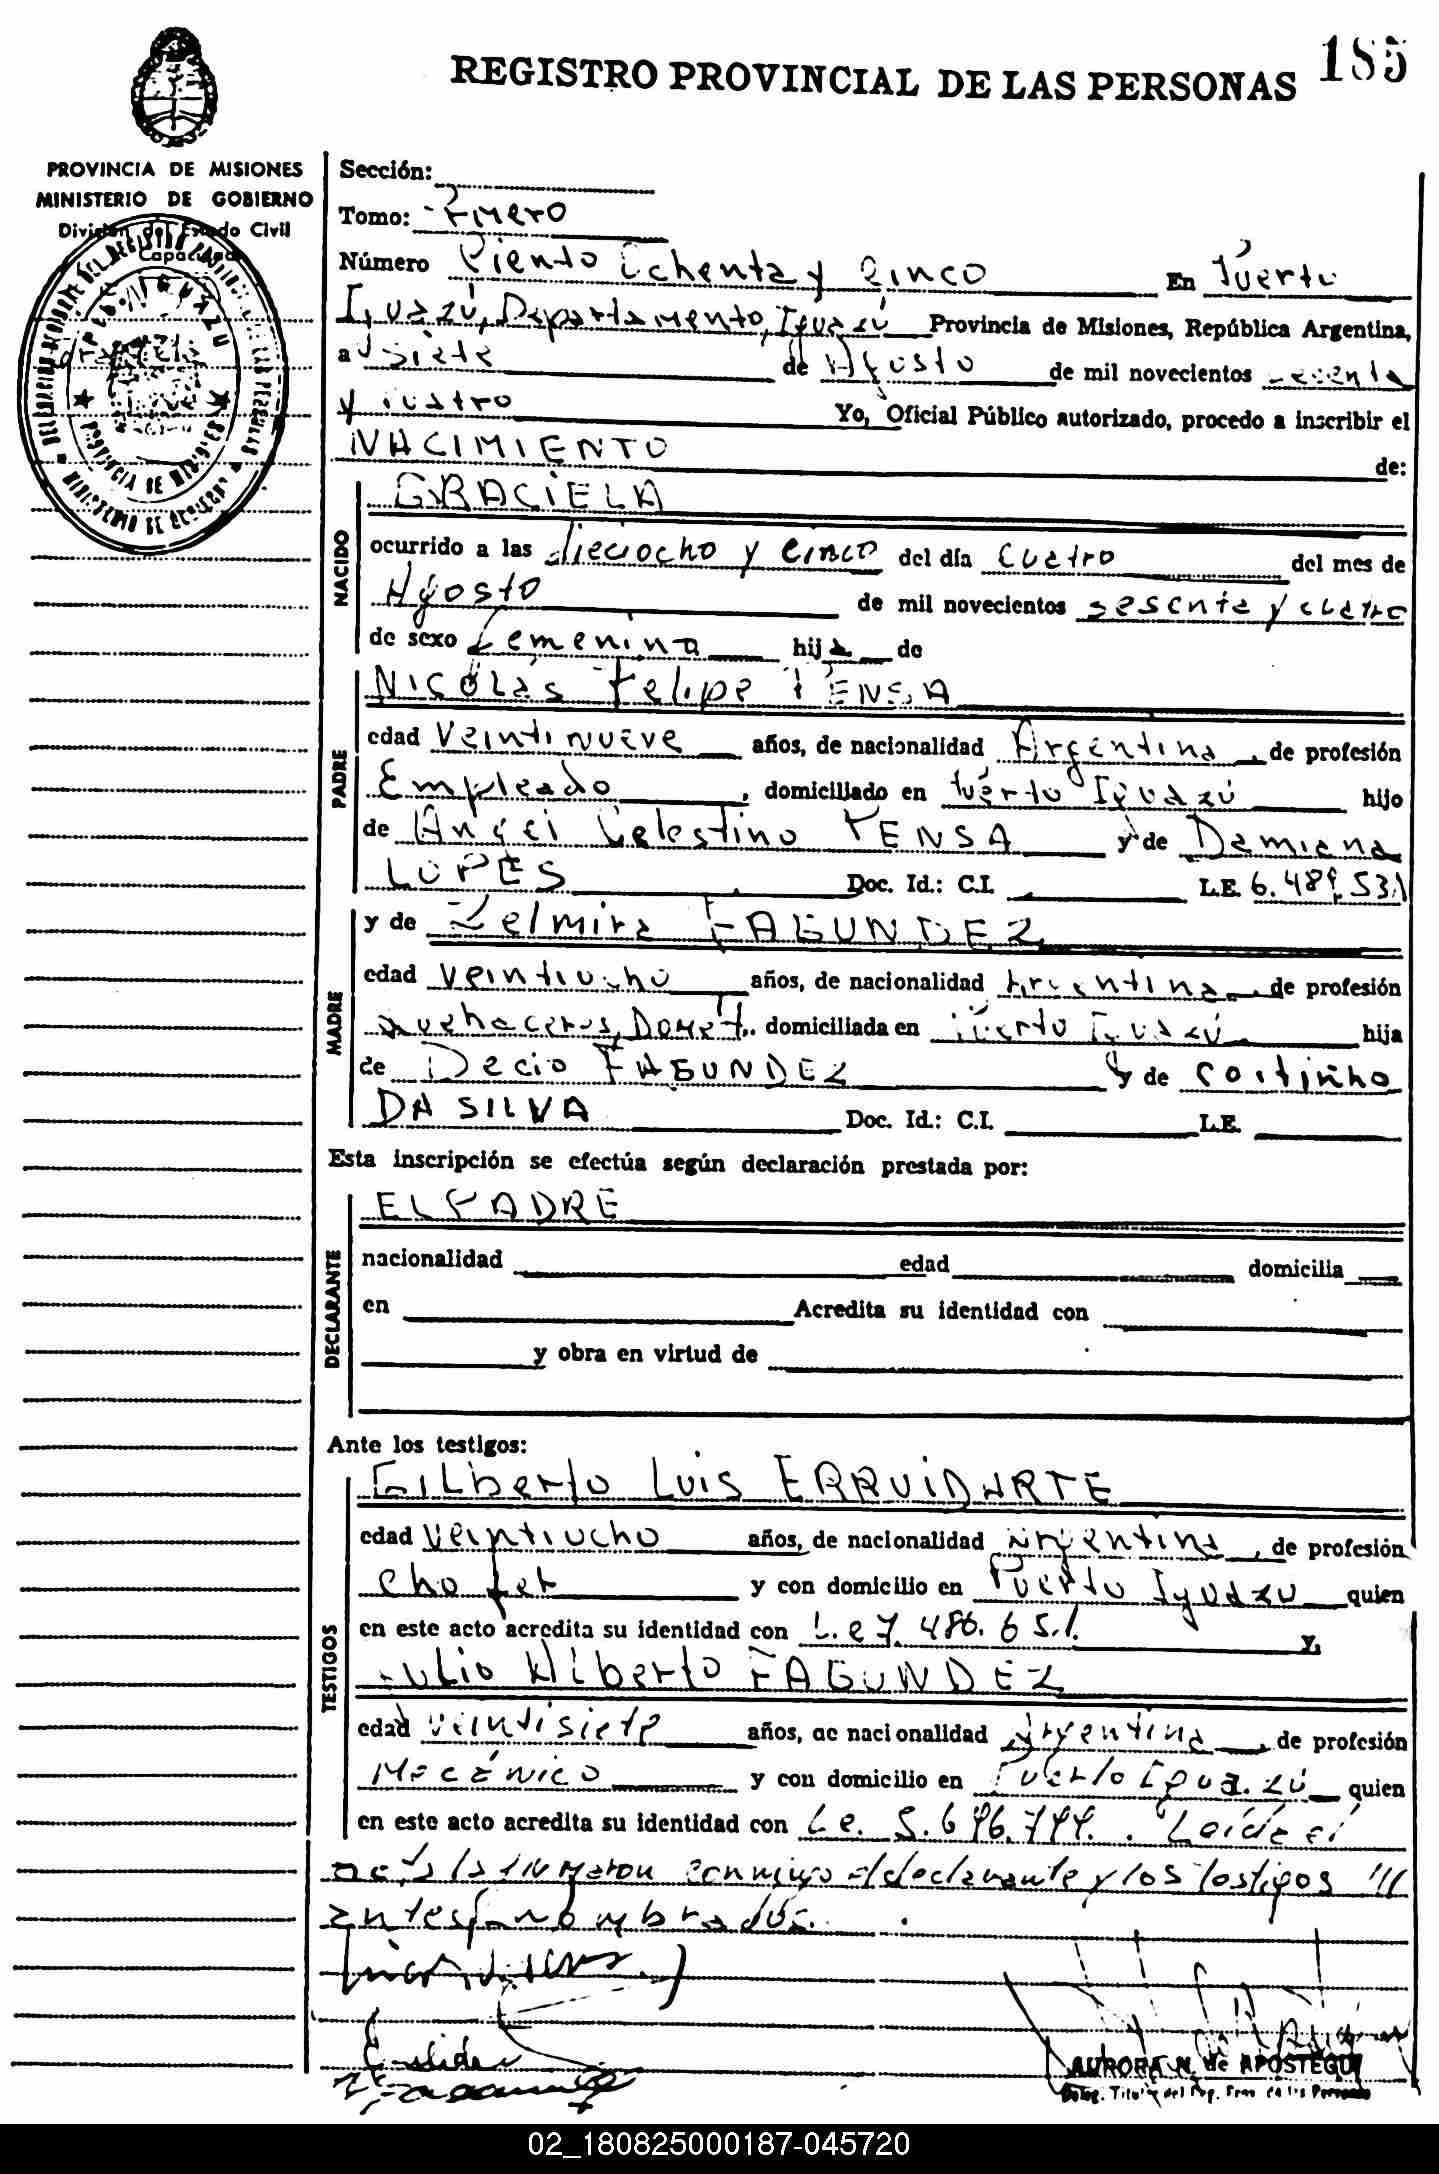 REGISTRO PROVINCIAL DE LAS PERSONAS 185
PROVINCIA DE MISIONES
MINISTERIO DE GOBIERNO
División del Estado Civil
Capacidad
Sección:
Tomo: Primero
Número Ciento Ochenta y Cinco En Puerto
Iguazú, Departamento, Iguazú Provincia de Misiones, República Argentina,
a Siete de Agosto de mil novecientos sesenta
y cuatro Yo, Oficial Público autorizado, procedo a inscribir el
NACIMIENTO de:
NACIDO
GRACIELA
ocurrido a las dieciocho y cinco del día Cuatro del mes de
Agosto de mil novecientos sesenta y cuatro
de sexo femenina hija de
PADRE
Nicolás Felipe PENSA
edad Veintinueve años, de nacionalidad Argentina, de profesión
Empleado, domiciliado en Puerto Iguazú hijo
de Angel Celestino PENSA y de Damiana
LOPES Doc. Id.: C.I. L.E. 6.489.531
MADRE
y de Zelmira FAGUNDEZ
edad Veintiocho años, de nacionalidad Argentina, de profesión
Quehaceres Domét., domiciliada en Puerto Iguazú hija
de Decio FAGUNDEZ y de Coitinho
DA SILVA Doc. Id.: C.I. L.E.
Esta inscripción se efectúa según declaración prestada por:
DECLARANTE
EL PADRE
nacionalidad edad domicilia
en Acredita su identidad con
y obra en virtud de
Ante los testigos:
TESTIGOS
Gilberto Luis ERRUIDARTE
edad Veintiocho años, de nacionalidad Argentina, de profesión
Chofer y con domicilio en Puerto Iguazú quien
en este acto acredita su identidad con L.e 7.486.651. y,
Julio Alberto FAGUNDEZ
edad Veintisiete años, de nacionalidad Argentina, de profesión
Mecánico y con domicilio en Puerto Iguazú quien
en este acto acredita su identidad con L.e. Leída el
acta la firmaron conmigo el declarante y los testigos
antes nombrados.
AURORA N. de APOSTEGUI
02_180825000187-045720